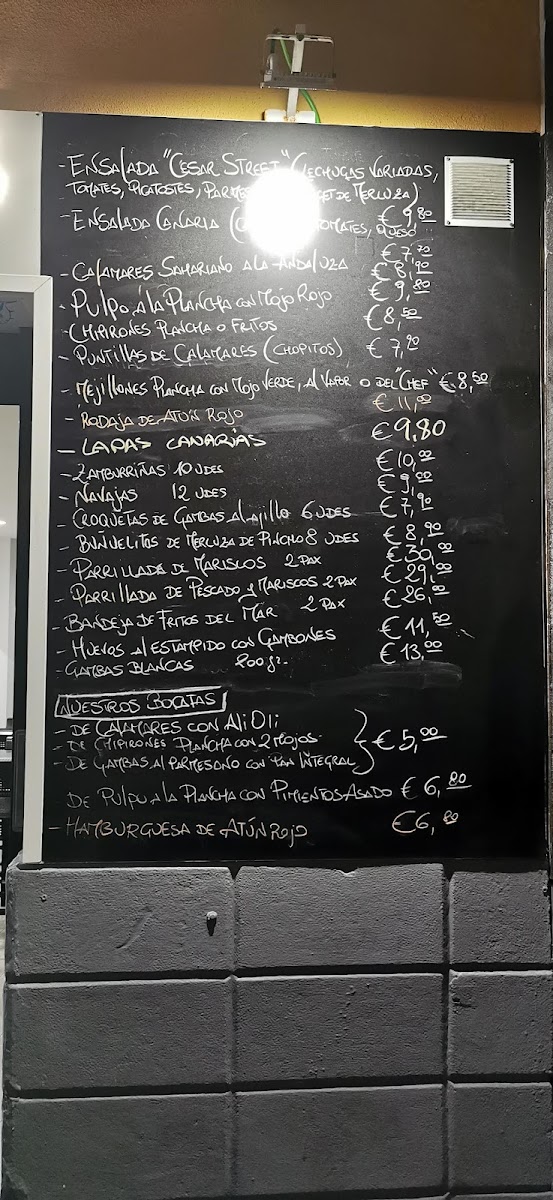 - ENSALADA "CESAR STREET" (LECHUGAS VARIADAS,
TOMATES, PICATOSTES, DE MERLUZA) € 9,80
- ENSALADA CANARIA ( TOMATES, QUESO
€ 7,70
- CALAMARES SAHARIANO A LA ANDALUZA € 8,90
- PULPO A LA PLANCHA CON MOJO ROJO € 9,80
- CHIPIRONES PLANCHA O FRITOS € 8,50
- PUNTILLAS DE CALAMARES (CHOPITOS) € 7,90
- MEJILLONES PLANCHA CON MOJO VERDE, AL VAPOR O DEL "CHEF" € 8,50
- RODAJA DE ATÚN ROJO € 11,00
- LAPAS CANARIAS € 9,80
- ZAMBURRIÑAS 10 UDES € 10,00
- NAVAJAS 12 UDES € 9,00
- CROQUETAS DE GAMBAS AL AJILLO 6 UDES € 7,90
- BUÑUELITOS DE MERLUZA DE PINCHO 8 UDES € 8,90
- PARRILLADA DE MARISCOS 2 PAX € 30,00
- PARRILLADA DE PESCADO Y MARISCOS 2 PAX € 29,00
- BANDEJA DE FRITOS DEL MAR 2 PAX € 26,00
- HUEVOS AL ESTAMPIDO CON GAMBONES € 11,50
- GAMBAS BLANCAS 200 gr. € 13,00
NUESTROS BOCATAS
- DE CALAMARES CON ALI OLI
- DE CHIPIRONES PLANCHA CON 2 MOJOS. } € 5,00
- DE GAMBAS AL PARMESANO CON PAN INTEGRAL
DE PULPO A LA PLANCHA CON PIMIENTOS ASADO € 6,80
- HAMBURGUESA DE ATÚN ROJO € 6,80